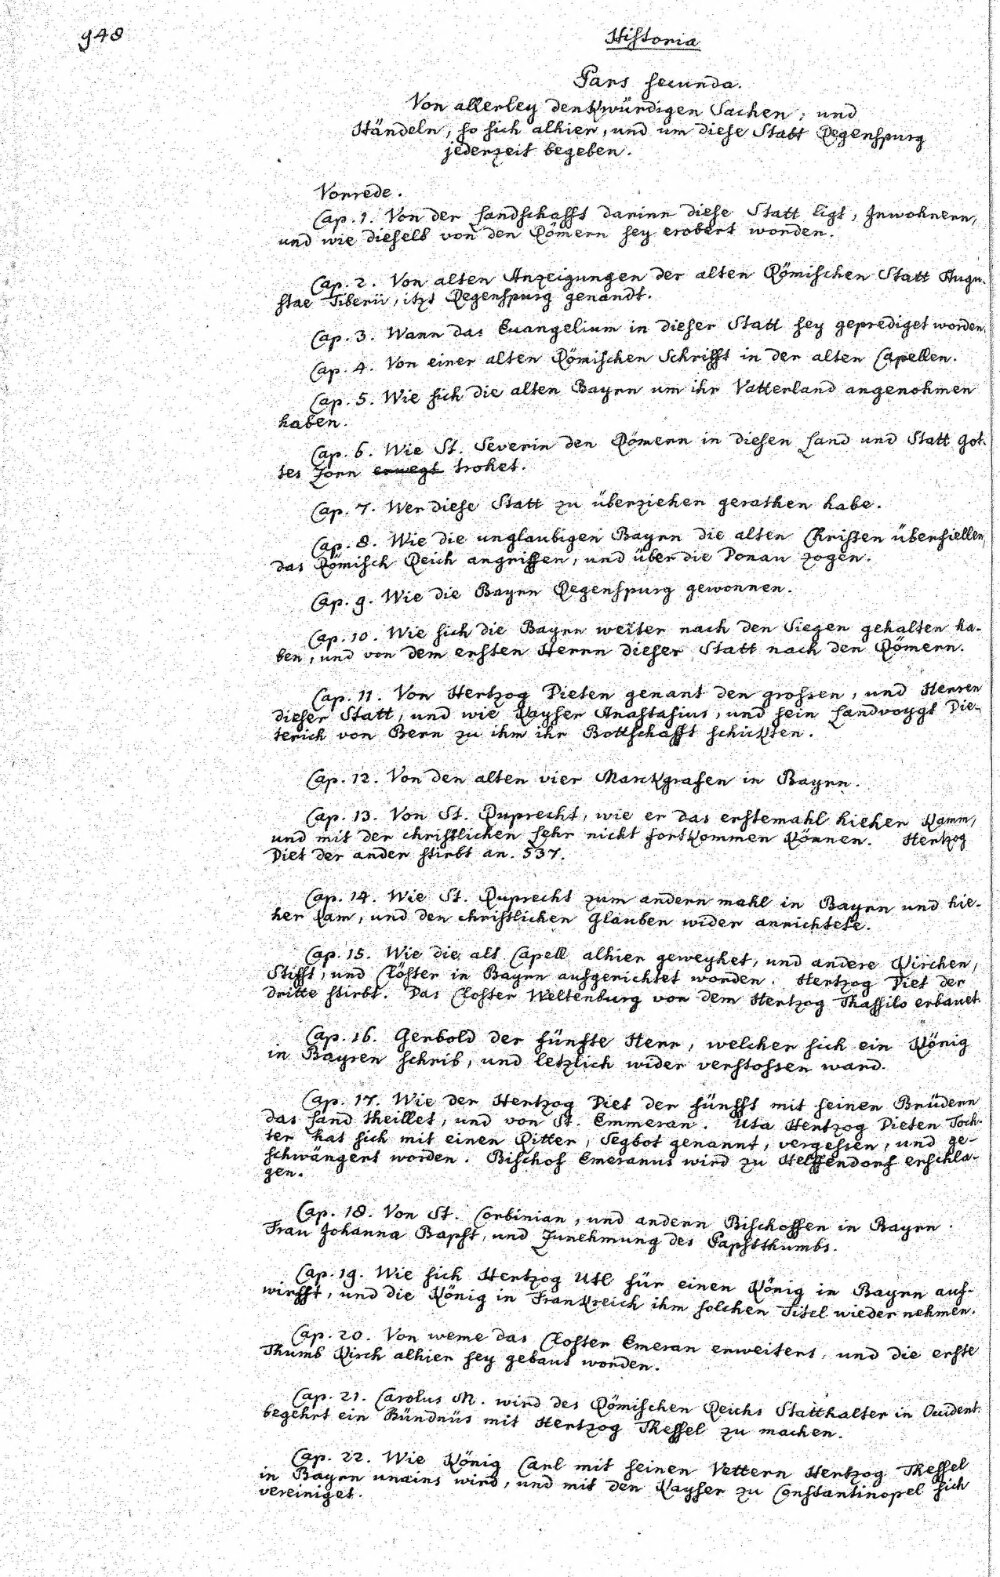 948
Historia
Pars secunda.
Von allerley denkwürdigen Sachen, und
Händeln, so sich alhier, und um diese Statt Regenspurg
jederzeit begeben.
Vorrede.
Cap. 1. Von der Landschafft darinn diese Statt ligt, Inwohnern,
und wie dieselb von den Römern sey erobert worden.
Cap. 2. Von alten Anzeigungen der alten Römischen Statt Augu-
stae Tiberii, itzt Regenspurg genandt.
Cap. 3. Wann das Evangelium in dieser Statt sey geprediget worden.
Cap. 4. Von einer alten Römischen Schrifft in der alten Capellen.
Cap. 5. Wie sich die alten Bayrn um ihr Vatterland angenohmen
haben.
Cap. 6. Wie St. Severin den Römern in diesen Land und Statt Got-
tes Zorn erwegt trohet.
Cap. 7. Wer diese Statt zu überziehen gerathen habe.
Cap. 8. Wie die unglaubigen Bayrn die alten Christen überfiellen,
das Römisch Reich angriffen, und über die Donau zogen.
Cap. 9. Wie die Bayrn Regenspurg gewonnen.
Cap. 10. Wie sich die Bayrn weiter nach den Siegen gehalten ha-
ben, und von dem ersten Herrn dieser Statt nach den Römern.
Cap. 11. Von Hertzog Dieten genant den grossen, und Herren
dieser Statt, und wie Kayser Anastasius, und sein Landvoygt Die-
terich von Bern zu ihm ihr Bottschafft schickten.
Cap. 12. Von den alten vier Marckgrafen in Bayrn.
Cap. 13. Von St. Ruprecht, wie er das erstemahl hieher kamm,
und mit der christlichen Lehr nicht fortkommen können. Hertzog
Diet der ander stirbt an. 537.
Cap. 14. Wie St. Ruprecht zum andern mahl in Bayrn und hie-
her kam, und den christlichen Glauben wider anrichtete.
Cap. 15. Wie die alt Capell alhier geweyhet, und andere Kirchen,
Stifft, und Clöster in Bayrn aufgerichtet worden. Hertzog Diet der
dritte stirbt. Das Closter Weltenburg von dem Hertzog Thassilo erbauet.
Cap. 16. Gerbold der fünfte Herr, welcher sich ein König
in Bayren schrib, und letzlich wider verstossen ward.
Cap. 17. Wie der Hertzog Diet der fünfft mit seinen Brüdern
das Land theillet, und von St. Emmeran. Uta Hertzog Dieten Toch-
ter hat sich mit einen Ritter, Segbot genannt, vergessen, und ge-
schwängert worden. Bischof Emeranus wird zu Helffendorf erschla-
gen.
Cap. 18. Von St. Corbinian, und andern Bischoffen in Bayrn.
Frau Johanna Bapst, und Zunehmung des Papstthumbs.
Cap. 19. Wie sich Hertzog Utl für einen König in Bayrn auf-
wirfft, und die König in Frankreich ihm solchen Titel wieder nehmen.
Cap. 20. Von weme das Closter Emeran erweitert, und die erste
Thumb Kirch alhier sey gebaut worden.
Cap. 21. Carolus M. wird des Römischen Reichs Statthalter in Occident:
begehrt ein Bündnüs mit Hertzog Thessel zu machen.
Cap. 22. Wie König Carl mit seinen Vettern Hertzog Thessel
in Bayrn unains wird, und mit den Kayser zu Constantinopel sich
vereiniget.